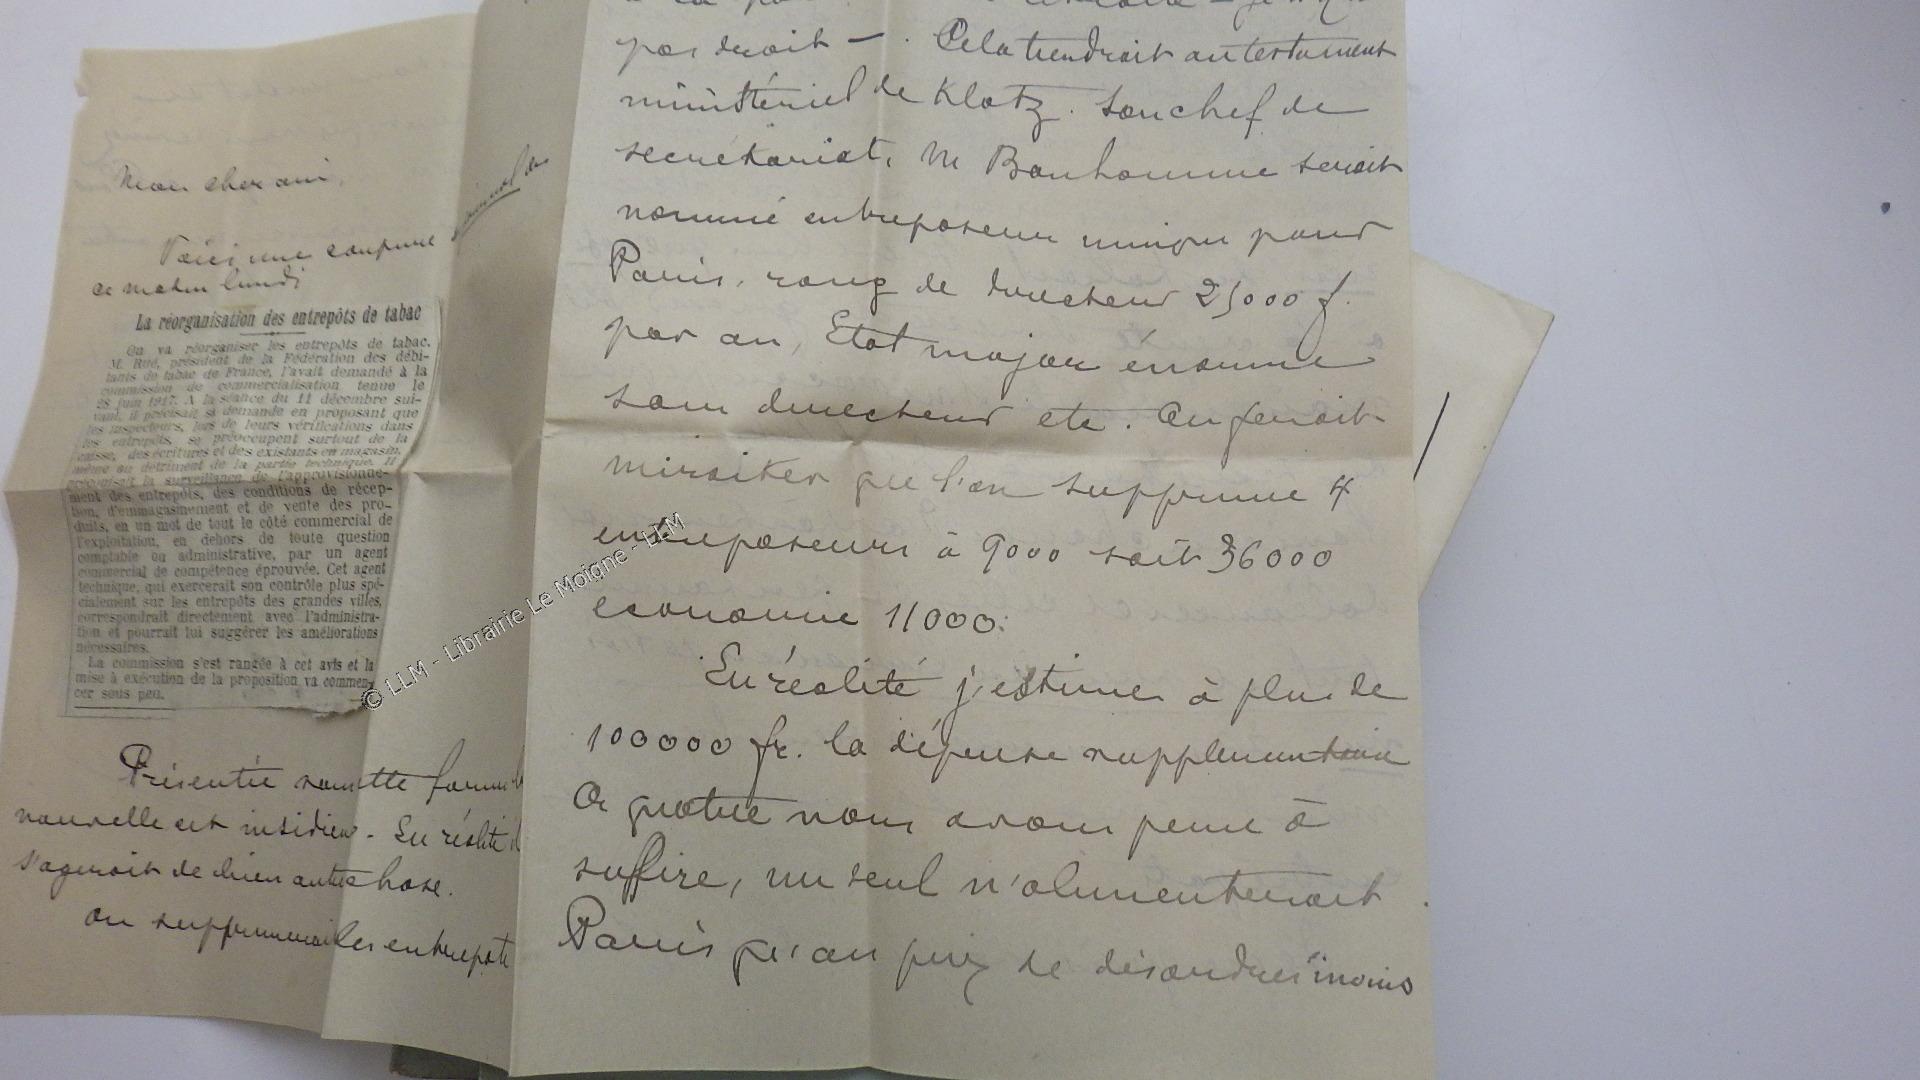 Mon cher ami,
Voici une coupure
ce matin lundi
La réorganisation des entrepôts de tabac
On va réorganiser les entrepôts de tabac.
M. Rué, président de la Fédération des débi-
tants de tabac de France, l'avait demandé à la
commission de commercialisation tenue le
28 juin 1917. A la séance du 11 décembre sui-
vant, il précisait sa demande en proposant que
les inspecteurs, lors de leurs vérifications dans
les entrepôts, se préoccupent surtout de la
caisse, des écritures et des existants en magasin,
même au détriment de la partie technique. Il
préconisait la surveillance de l'approvisionne-
ment des entrepôts, des conditions de récep-
tion, d'emmagasinement et de vente des pro-
duits, en un mot de tout le côté commercial de
l'exploitation, en dehors de toute question
comptable ou administrative, par un agent
commercial de compétence éprouvée. Cet agent
technique, qui exercerait son contrôle plus spé-
cialement sur les entrepôts des grandes villes,
correspondrait directement avec l'administra-
tion et pourrait lui suggérer les améliorations
nécessaires.
La commission s'est rangée à cet avis et la
mise à exécution de la proposition va commen-
cer sous peu.
Présentée sous cette forme la
nouvelle est insidieuse - En réalité il
s'agirait de bien autre chose.
on supprimerait les entrepots
pas droit - . Cela tiendrait au testament
ministériel de Klotz. Son chef de
secrétariat, M Bonhomme serait
nommé entreposeur unique pour
Paris, rang de directeur 25000 f.
par an, Etat major énorme
sous directeur etc. On ferait
miroiter que l'on supprime 4
entreposeurs à 9000 soit 36000
economie 11000.
En réalité j'estime à plus de
100000 fr. la dépense supplementaire
A quatre nous avons peine à
suffire, un seul n'alimenterait
Paris qu'au prix de désordres inouis
© LLM - Librairie Le Moigne - LLM